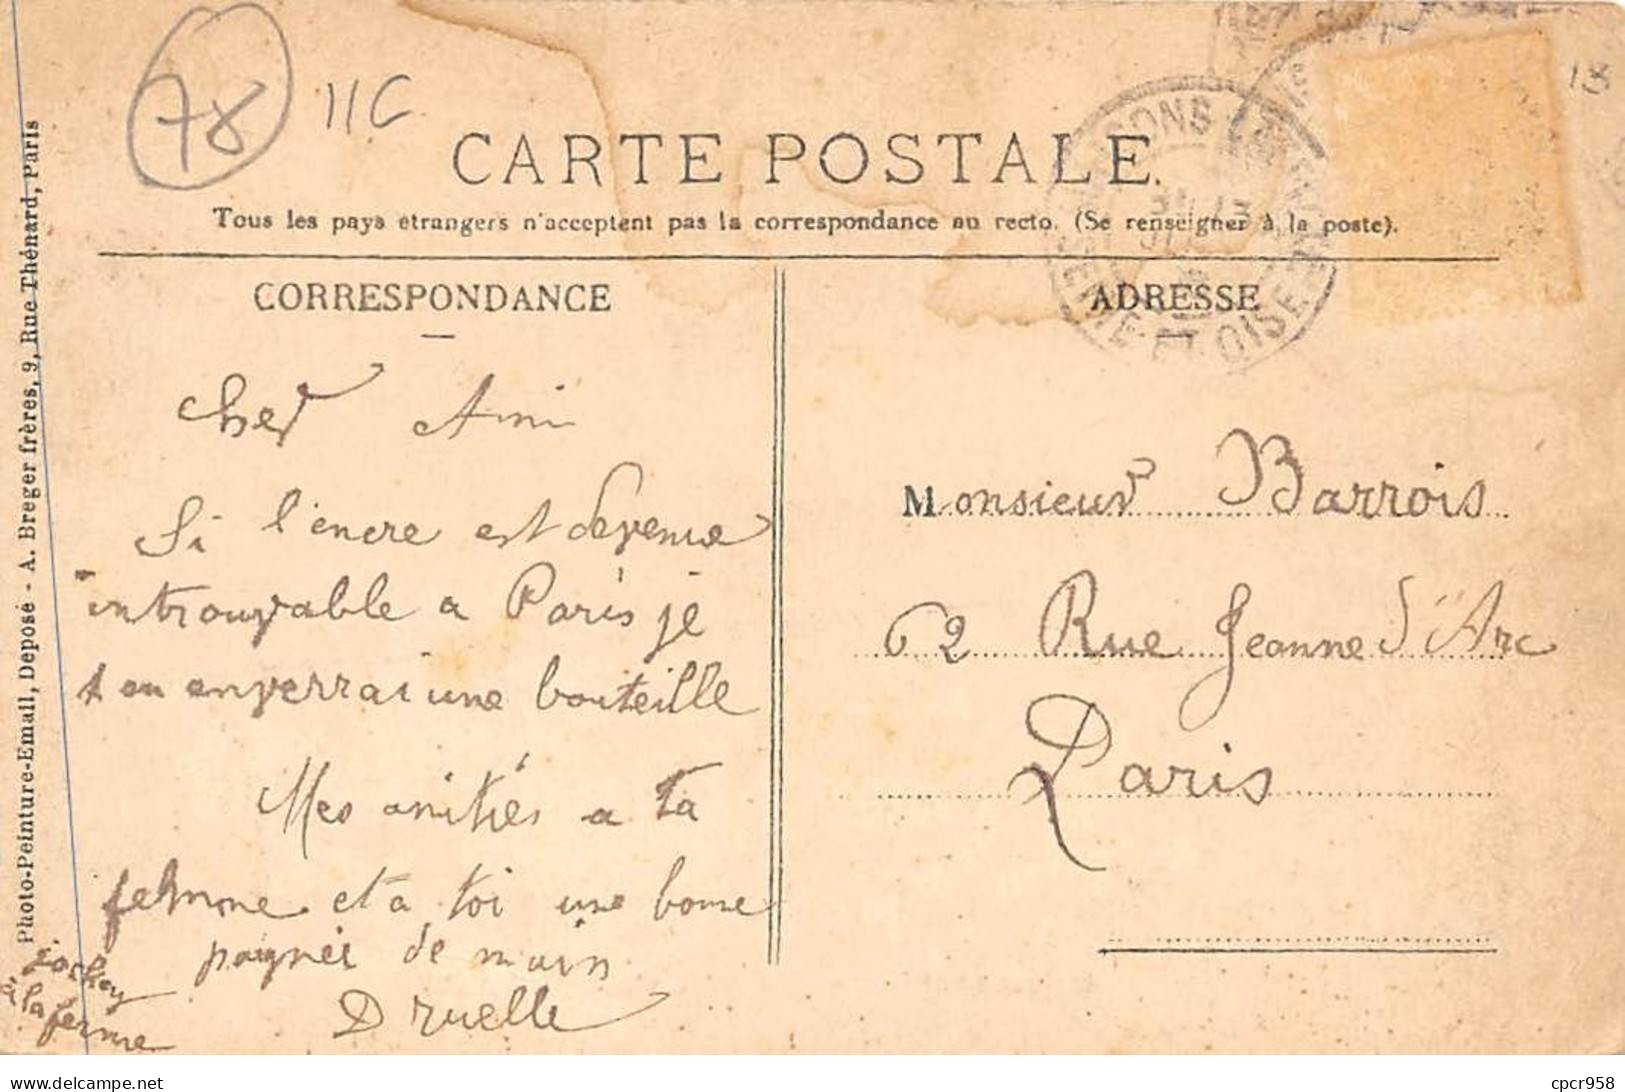 78
11C
13
CARTE POSTALE.
Tous les pays étrangers n'acceptent pas la correspondance au recto. (Se renseigner à la poste).
CORRESPONDANCE
ADRESSE
ET OISE
Cher Ami
Si l'encre est devenue
introuvable a Paris je
t en enverrai une bouteille
Mes amitiés a ta
femme et a toi une bonne
poignée de main
Druelle
jockey
à la ferme
Monsieur Barrois
62 Rue Jeanne d'Arc
Paris
Photo-Peinture-Email, Déposé - A. Breger frères, 9, Rue Thénard, Paris
cpcr958